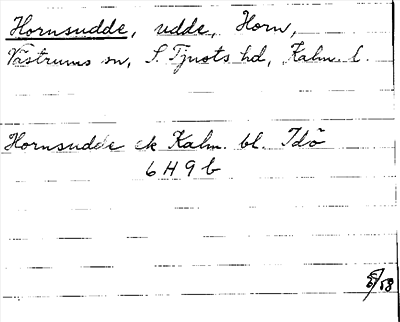 Hornsudde, udde, Horn,
Västrums sn, S. Tjusts hd, Kalm. l.
Hornsudde ek Kalm. bl. Idö
6 H 9 b
5/58